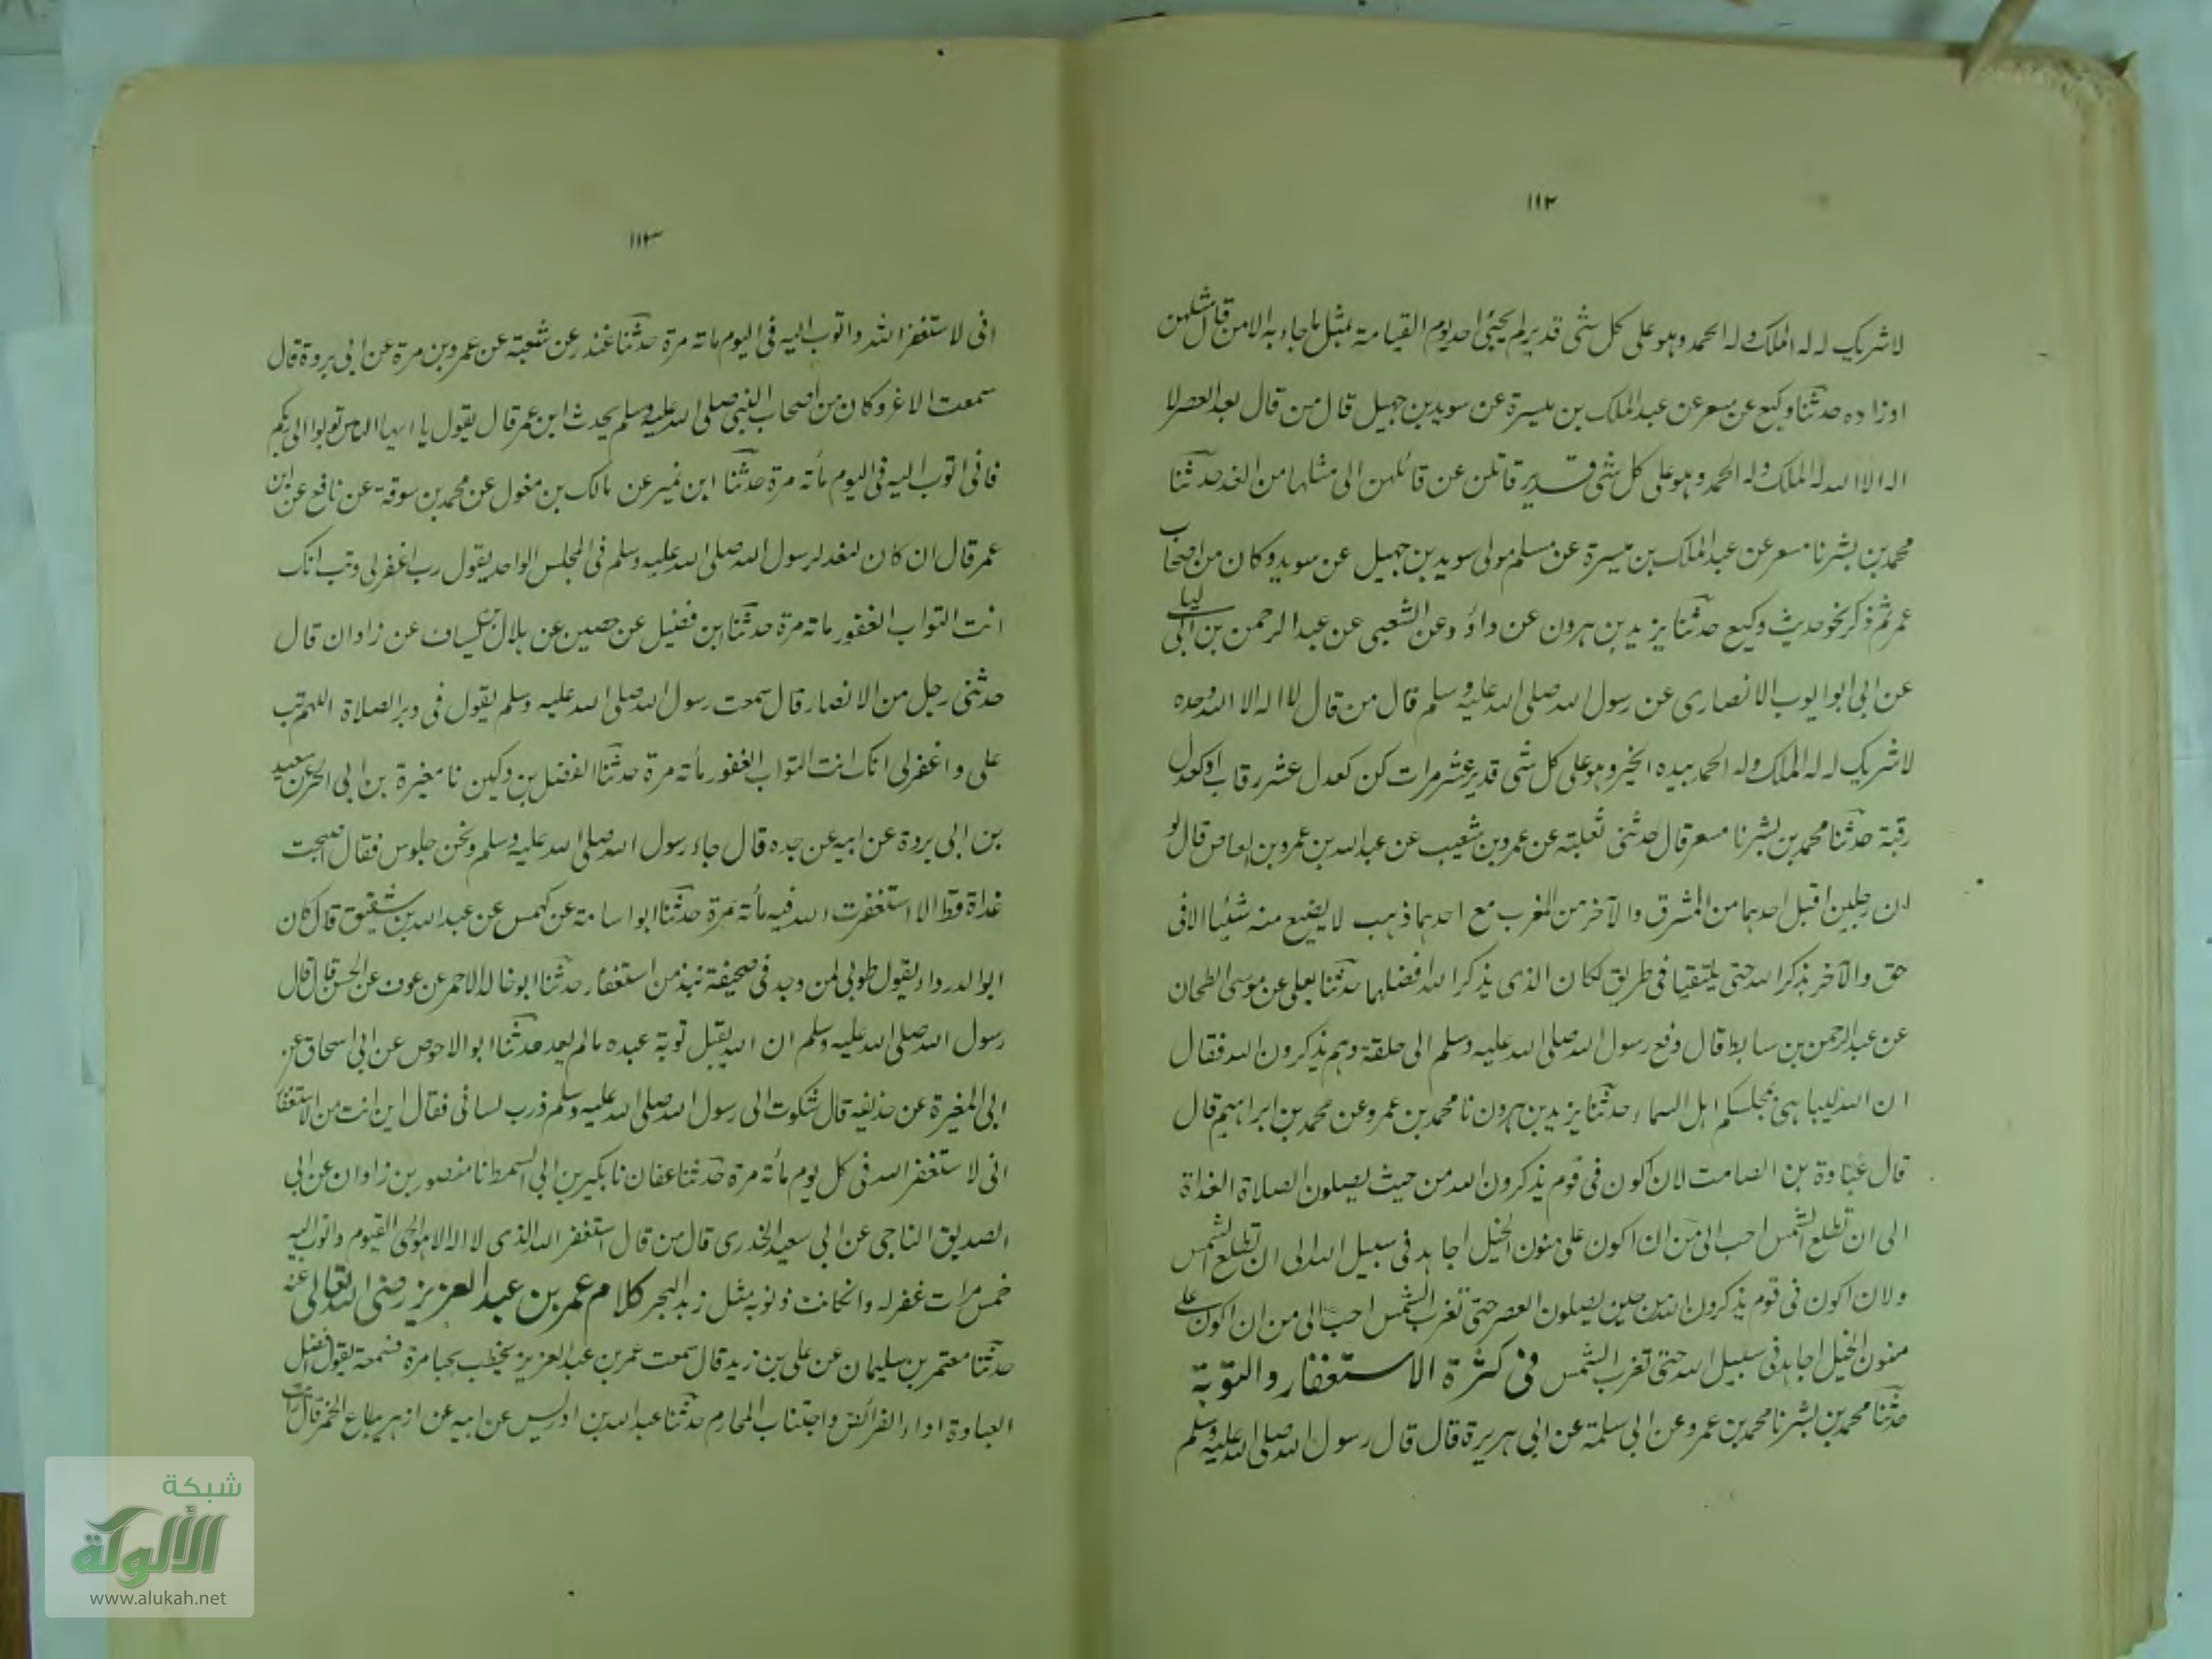 ١١٢
لا شريك له له الملك وله الحمد وهو على كل شئ قدير لم يجئ احد يوم القيامة بمثل ما جاء به الا من قال مثلهن
او زاده حدثنا وكيع عن مسعر عن عبد الملك بن ميسرة عن سويد بن جهيل قال من قال بعد العصر لا
اله الا الله له الملك وله الحمد وهو على كل شئ قدير قاتلن عن قائلهن الى مثلها من الغد حدثنا
محمد بن بشر نا مسعر عن عبد الملك بن ميسرة عن مسلم مولى سويد بن جهيل عن سويد وكان من اصحاب
عمر ثم ذكر نحو حديث وكيع حدثنا يزيد بن هرون عن داؤد وعن الشعبى عن عبد الرحمن بن ابى ليلى
عن ابى ابوايوب الانصارى عن رسول الله صلى الله عليه وسلم قال من قال لا اله الا الله وحده
لا شريك له له الملك وله الحمد بيده الخير وهو على كل شئ قدير عشر مرات كن كعدل عشر رقاب او كعدل
رقبة حدثنا محمد بن بشر نا مسعر قال حدثنى ثعلبة عن عمرو بن شعيب عن عبد الله بن عمرو بن العاص قال لو
ان رجلين اقبل احدهما من المشرق والآخر من المغرب مع احدهما ذهب لا يضيع منه شيئا الا فى
حق والآخر يذكر الله حتى يلتقيا فى طريق لكان الذى يذكر الله افضلهما حدثنا يعلى عن موسى الطحان
عن عبد الرحمن بن سابط قال وقع رسول الله صلى الله عليه وسلم الى حلقة وهم يذكرون الله فقال
ان الله ليباهى بمجلسكم اهل السماء حدثنا يزيد بن هرون نا محمد بن عمرو عن محمد بن ابراهيم قال
قال عبادة بن الصامت لان اكون فى قوم يذكرون الله من حيث يصلون الصلاة الغداة
الى ان تطلع الشمس احب الى من ان اكون على متون الخيل اجاهد فى سبيل الله الى ان تطلع الشمس
ولان اكون فى قوم يذكرون الله من حين يصلون العصر حتى تغرب الشمس احب الى من ان اكون على
متون الخيل اجاهد فى سبيل الله حتى تغرب الشمس فى كثرة الاستغفار والتوبة
حدثنا محمد بن بشر نا محمد بن عمرو عن ابى سلمة عن ابى هريرة قال قال رسول الله صلى الله عليه وسلم
١١٣
انى لاستغفر الله واتوب اليه فى اليوم مائة مرة حدثنا غندر عن شعبة عن عمرو بن مرة عن ابى بردة قال
سمعت الاغر وكان من اصحاب النبى صلى الله عليه وسلم يحدث ابن عمر قال يقول يا ايها الناس توبوا الى ربكم
فانى اتوب اليه فى اليوم مائة مرة حدثنا ابن نمير عن مالك بن مغول عن محمد بن سوقة عن نافع عن ابن
عمر قال ان كان لنعد لرسول الله صلى الله عليه وسلم فى المجلس الواحد يقول رب اغفر لى وتب انك
انت التواب الغفور مائة مرة حدثنا ابن فضيل عن حصين عن هلال بن يساف عن زادان قال
حدثنى رجل من الانصار قال سمعت رسول الله صلى الله عليه وسلم يقول فى دبر الصلاة اللهم تب
على واغفر لى انك انت التواب الغفور مائة مرة حدثنا الفضل بن دكين نا مغيرة بن ابى الحر عن سعيد
بن ابى بردة عن ابيه عن جده قال جاء رسول الله صلى الله عليه وسلم ونحن جلوس فقال اصبحت
غداة قط الا استغفرت الله فيه مائة مرة حدثنا ابو اسامة عن كهمس عن عبد الله بن شقيق قال كان
ابو الدرداء يقول طوبى لمن وجد فى صحيفة نبذ من استغفار حدثنا ابو خالد الاحمر عن عوف عن الحسن قال قال
رسول الله صلى الله عليه وسلم ان الله يقبل توبة عبده مالم يعد حدثنا ابو الاحوص عن ابى اسحاق عن
ابى المغيرة عن حذيفة قال شكوت الى رسول الله صلى الله عليه وسلم ذرب لسانى فقال اين انت من الاستغفار
انى لاستغفر الله فى كل يوم مائة مرة حدثنا عفان نا بكير بن ابى السمط نا منصور بن زادان عن ابى
الصديق الناجى عن ابى سعيد الخدرى قال من قال استغفر الله الذى لا اله الا هو الحى القيوم واتوب اليه
خمس مرات غفر له وان كانت ذنوبه مثل زبد البحر كلام عمر بن عبد العزيز رضى الله تعالى عنه
حدثنا معتمر بن سليمان عن على بن زيد قال سمعت عمر بن عبد العزيز يخطب بخناصرة فسمعته يقول افضل
العبادة اداء الفرائض واجتناب المحارم حدثنا عبد الله بن ادريس عن ابيه عن ازهر بياع الخمر قال رايت
شبكة
الألوكة
www.alukah.net